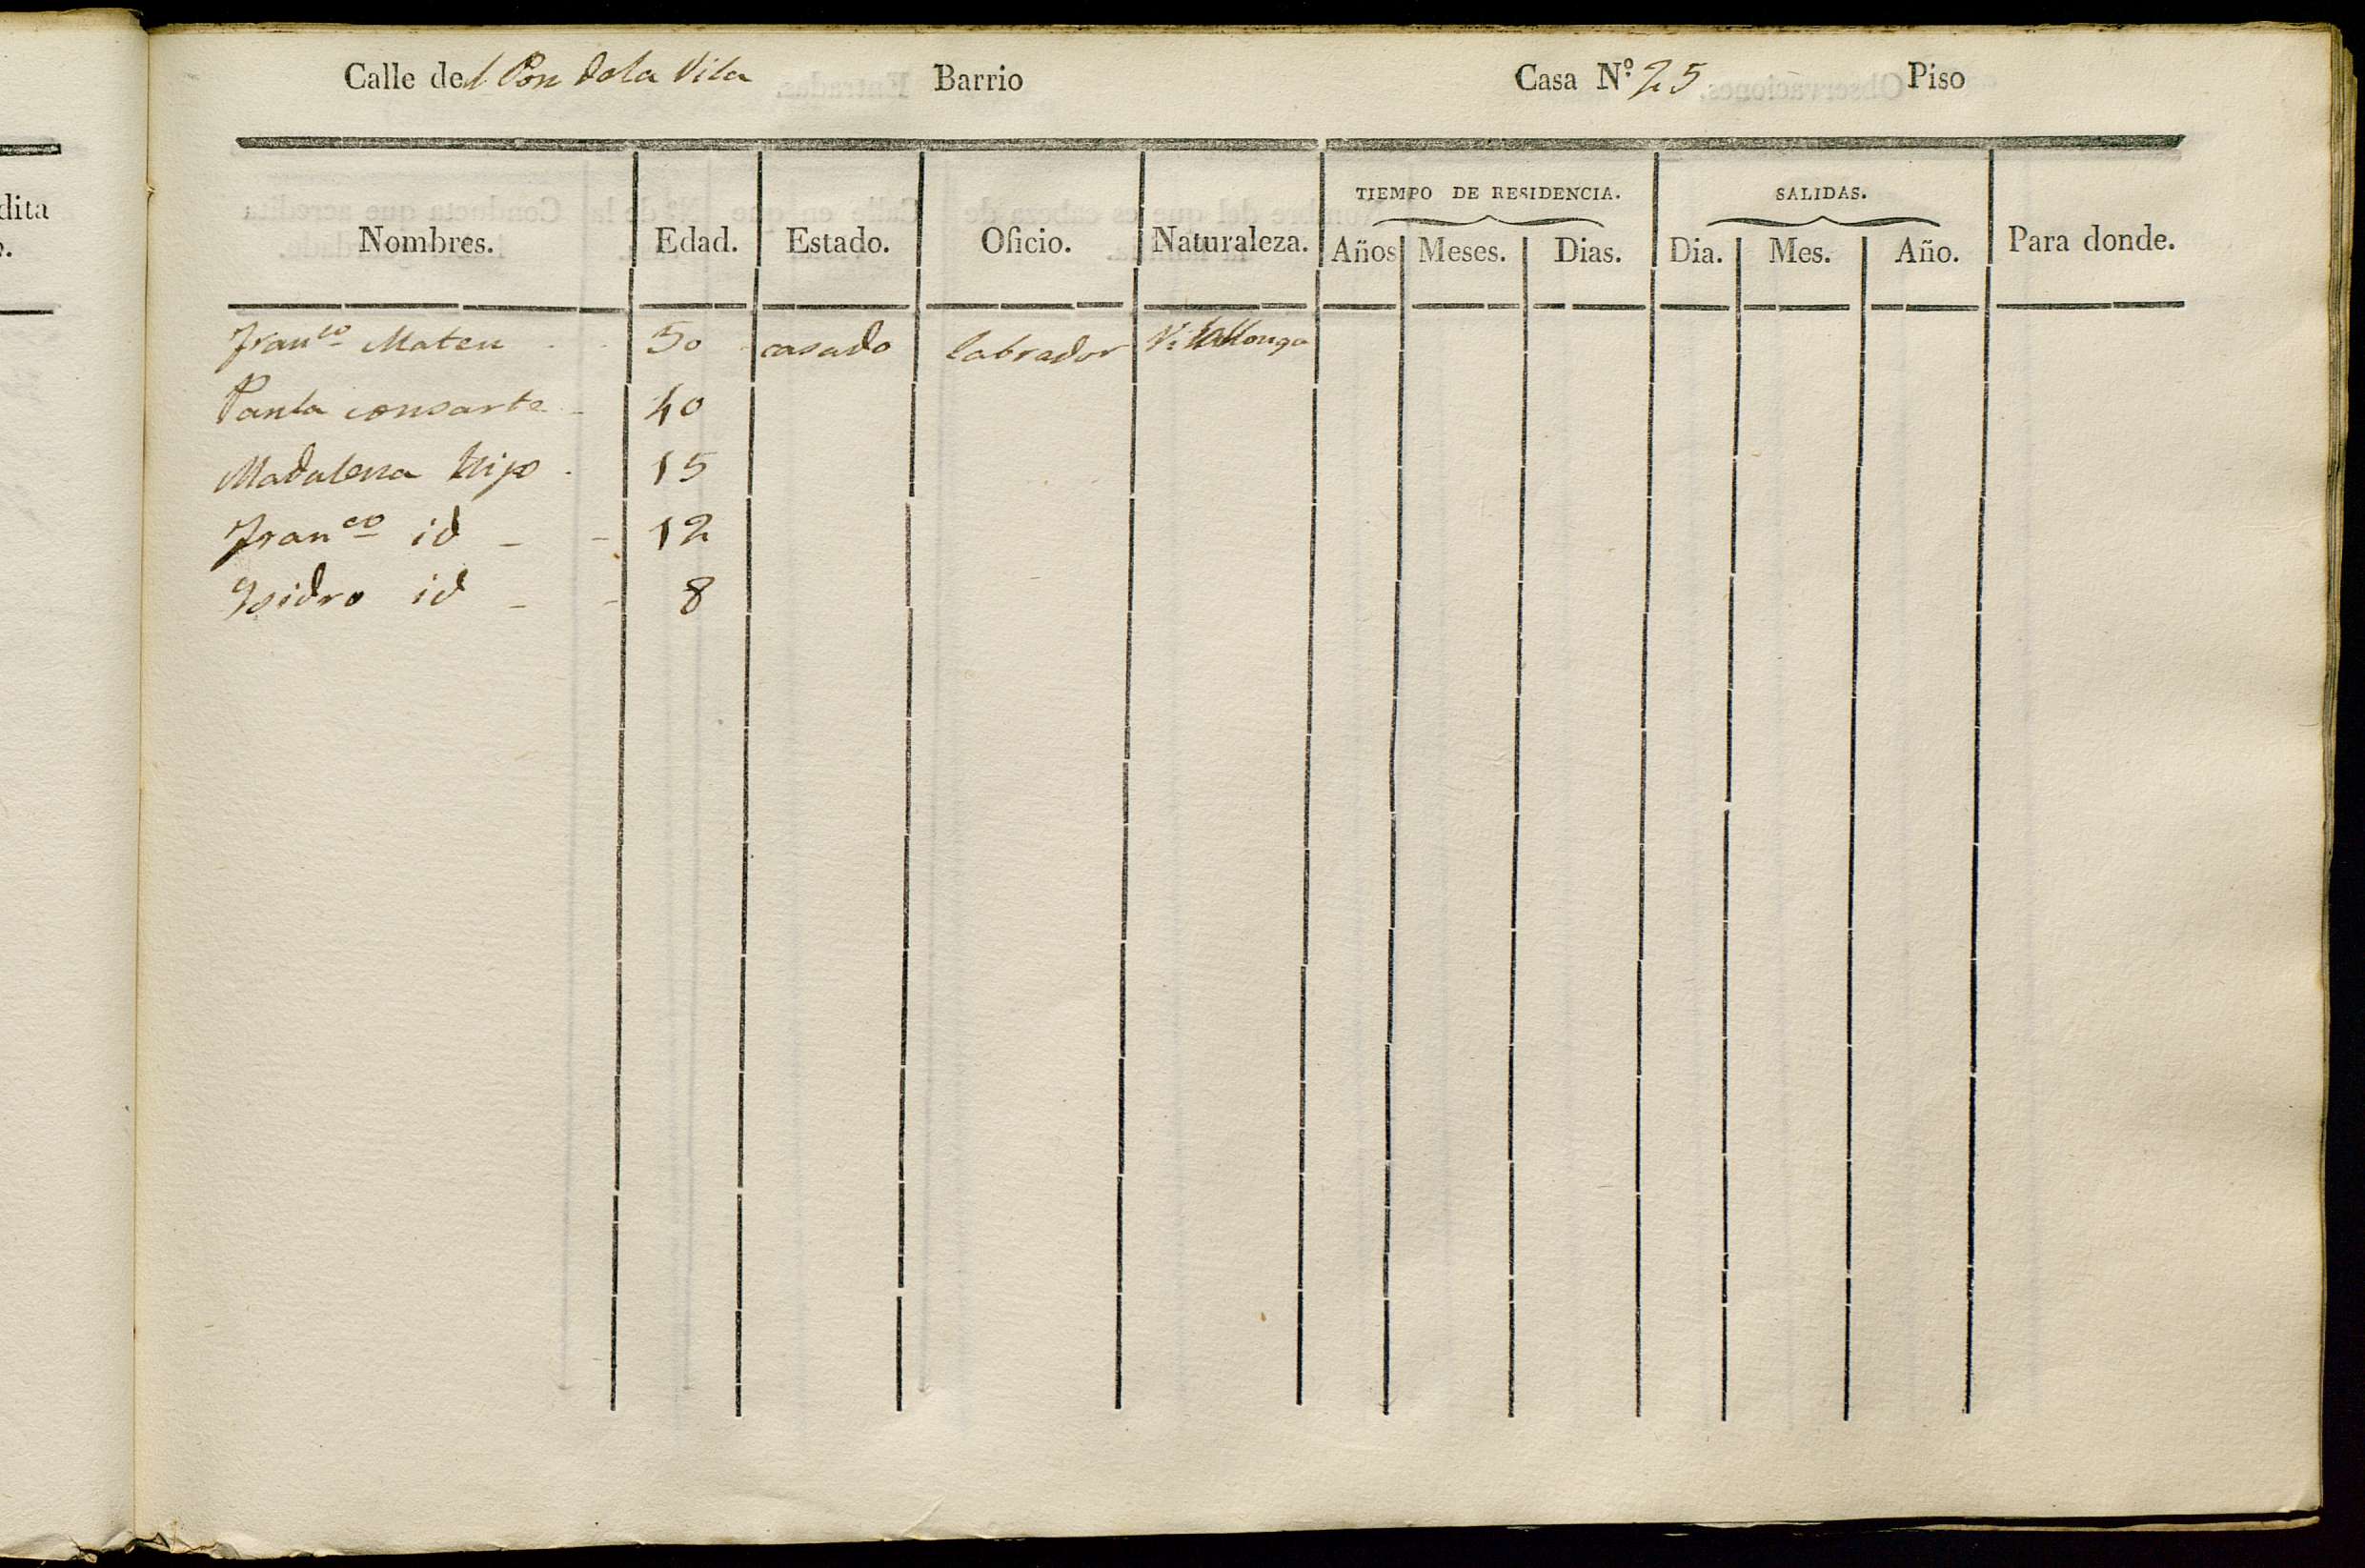 Calle del Pou dela Vila Barrio Casa Nº 25 Piso
dita
TIEMPO DE RESIDENCIA. SALIDAS.
Nombres. Edad. Estado. Oficio. Naturaleza. Años Meses. Dias. Dia. Mes. Año. Para donde.
Franco Mateu 50 casado labrador Vilallonga
Paula consorte 40
Madalena hijo 15
Franco id 12
Isidro id 8